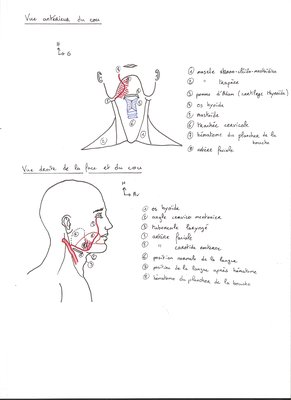 Vue antérieure du cou
H
G
① muscle sterno-cléido-mastoïdien
② " trapèze
③ pomme d'Adam (cartilage thyroïde)
④ os hyoïde
⑤ mastoïde
⑥ trachée cervicale
⑦ hématome du plancher de la bouche
⑧ artère faciale
Vue droite de la face et du cou
H
Av
① os hyoïde
② angle cervico-mentonnier
③ tubercule laryngé
④ artère faciale
⑤ " carotide externe
⑥ position normale de la langue
⑦ position de la langue après hématome
⑧ hématome du plancher de la bouche